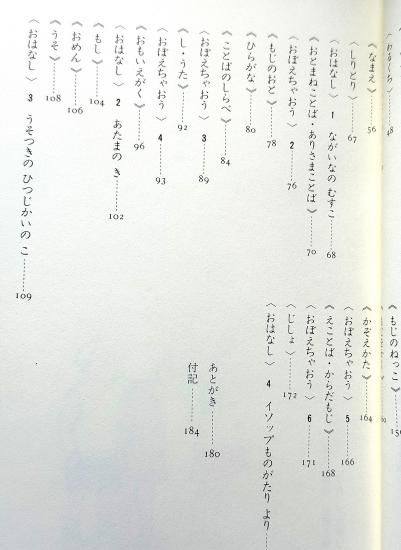 《わるくち》……48
《なまえ》……56
《しりとり》……67
〈おはなし〉 1 ながいなの むすこ……68
《おとまねことば・ありさまことば》……70
〈おぼえちゃおう〉 2……76
《もじのおと》……78
《ひらがな》……80
《ことばのしらべ》……84
〈おぼえちゃおう〉 3……89
《し・うた》……92
〈おぼえちゃおう〉 4……93
《おもいえがく》……96
〈おはなし〉 2 あたまの き……102
《もし》……104
《おめん》……106
《うそ》……108
〈おはなし〉 3 うそつきの ひつじかいの こ……109
《もじのねっこ》……15
《かぞえかた》……164
〈おぼえちゃおう〉 5……166
《えことば・からだもじ》……168
〈おぼえちゃおう〉 6……171
〈じしょ〉……172
〈おはなし〉 4 イソップものがたり より……
あとがき……180
付記……184